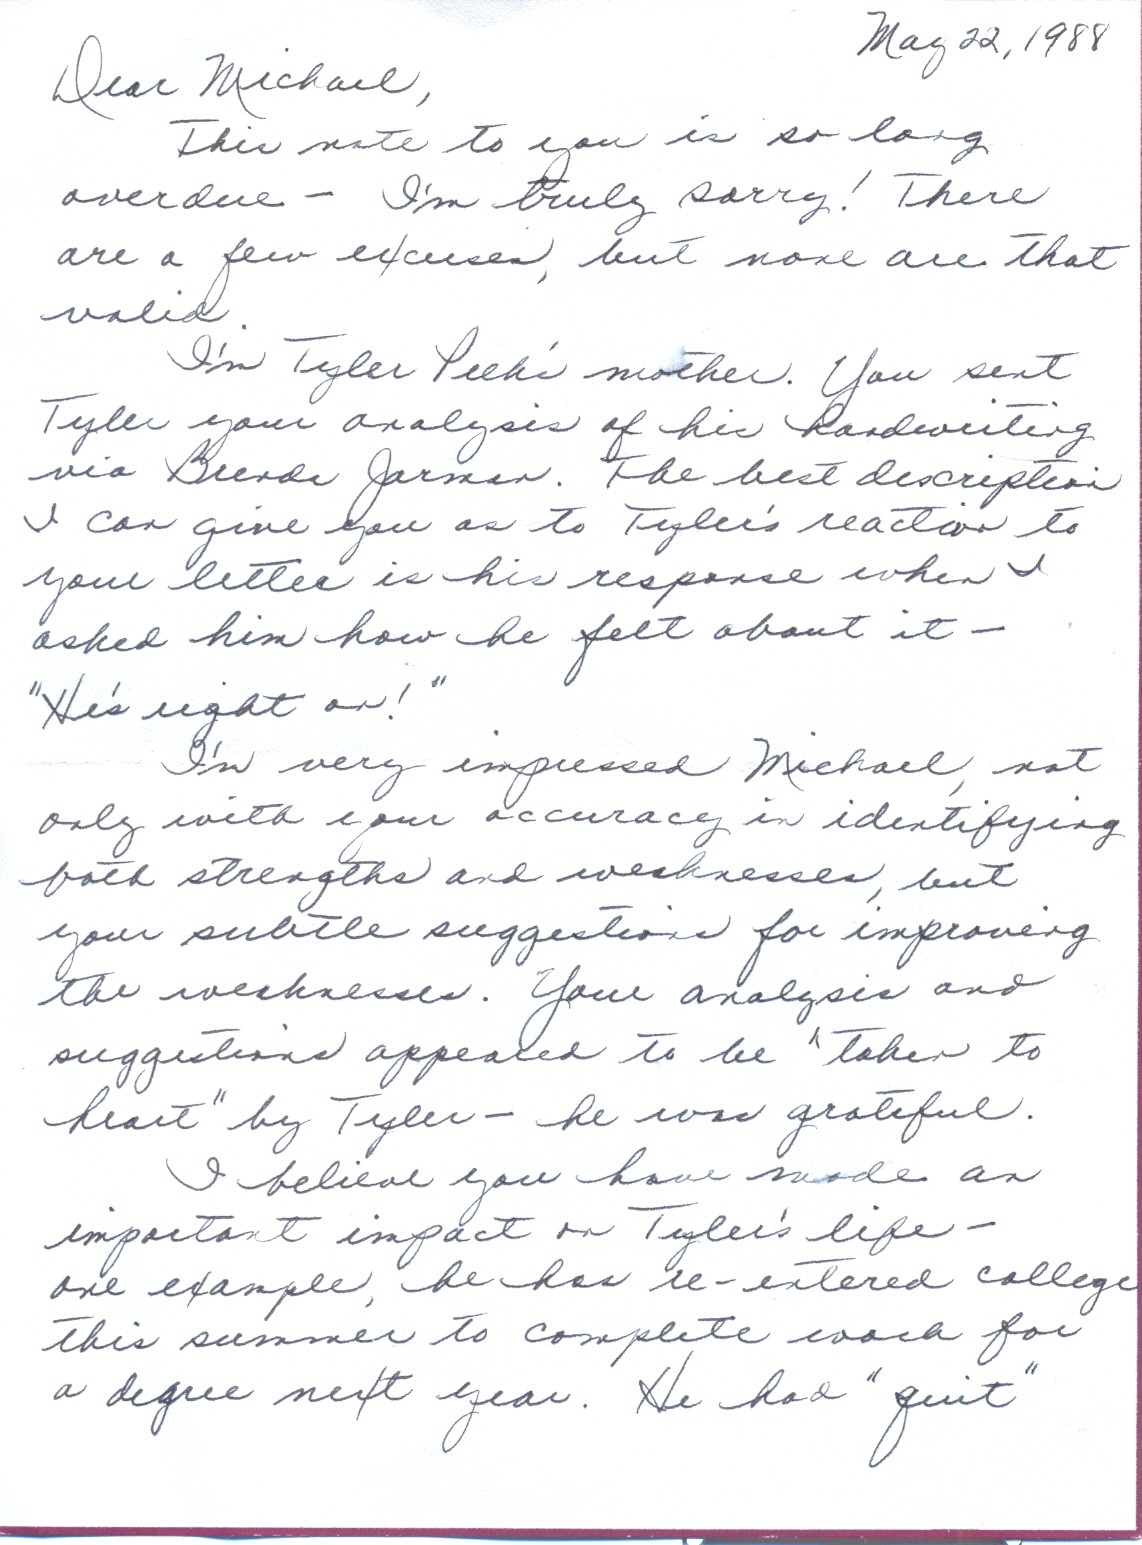 May 22, 1988
Dear Michael,
This note to you is so long
overdue – I'm truly sorry! There
are a few excuses, but none are that
valid.
I'm Tyler Peek's mother. You sent
Tyler your analysis of his handwriting
via Brenda Jarman. The best description
I can give you as to Tyler's reaction to
your letter is his response when I
asked him how he felt about it –
"He's right on!"
I'm very impressed Michael, not
only with your accuracy in identifying
both strengths and weaknesses, but
your subtle suggestions for improving
the weaknesses. Your analysis and
suggestions appeared to be "taken to
heart" by Tyler – he was grateful.
I believe you have made an
important impact on Tyler's life –
one example, he has re-entered college
this summer to complete work for
a degree next year. He had "quit"